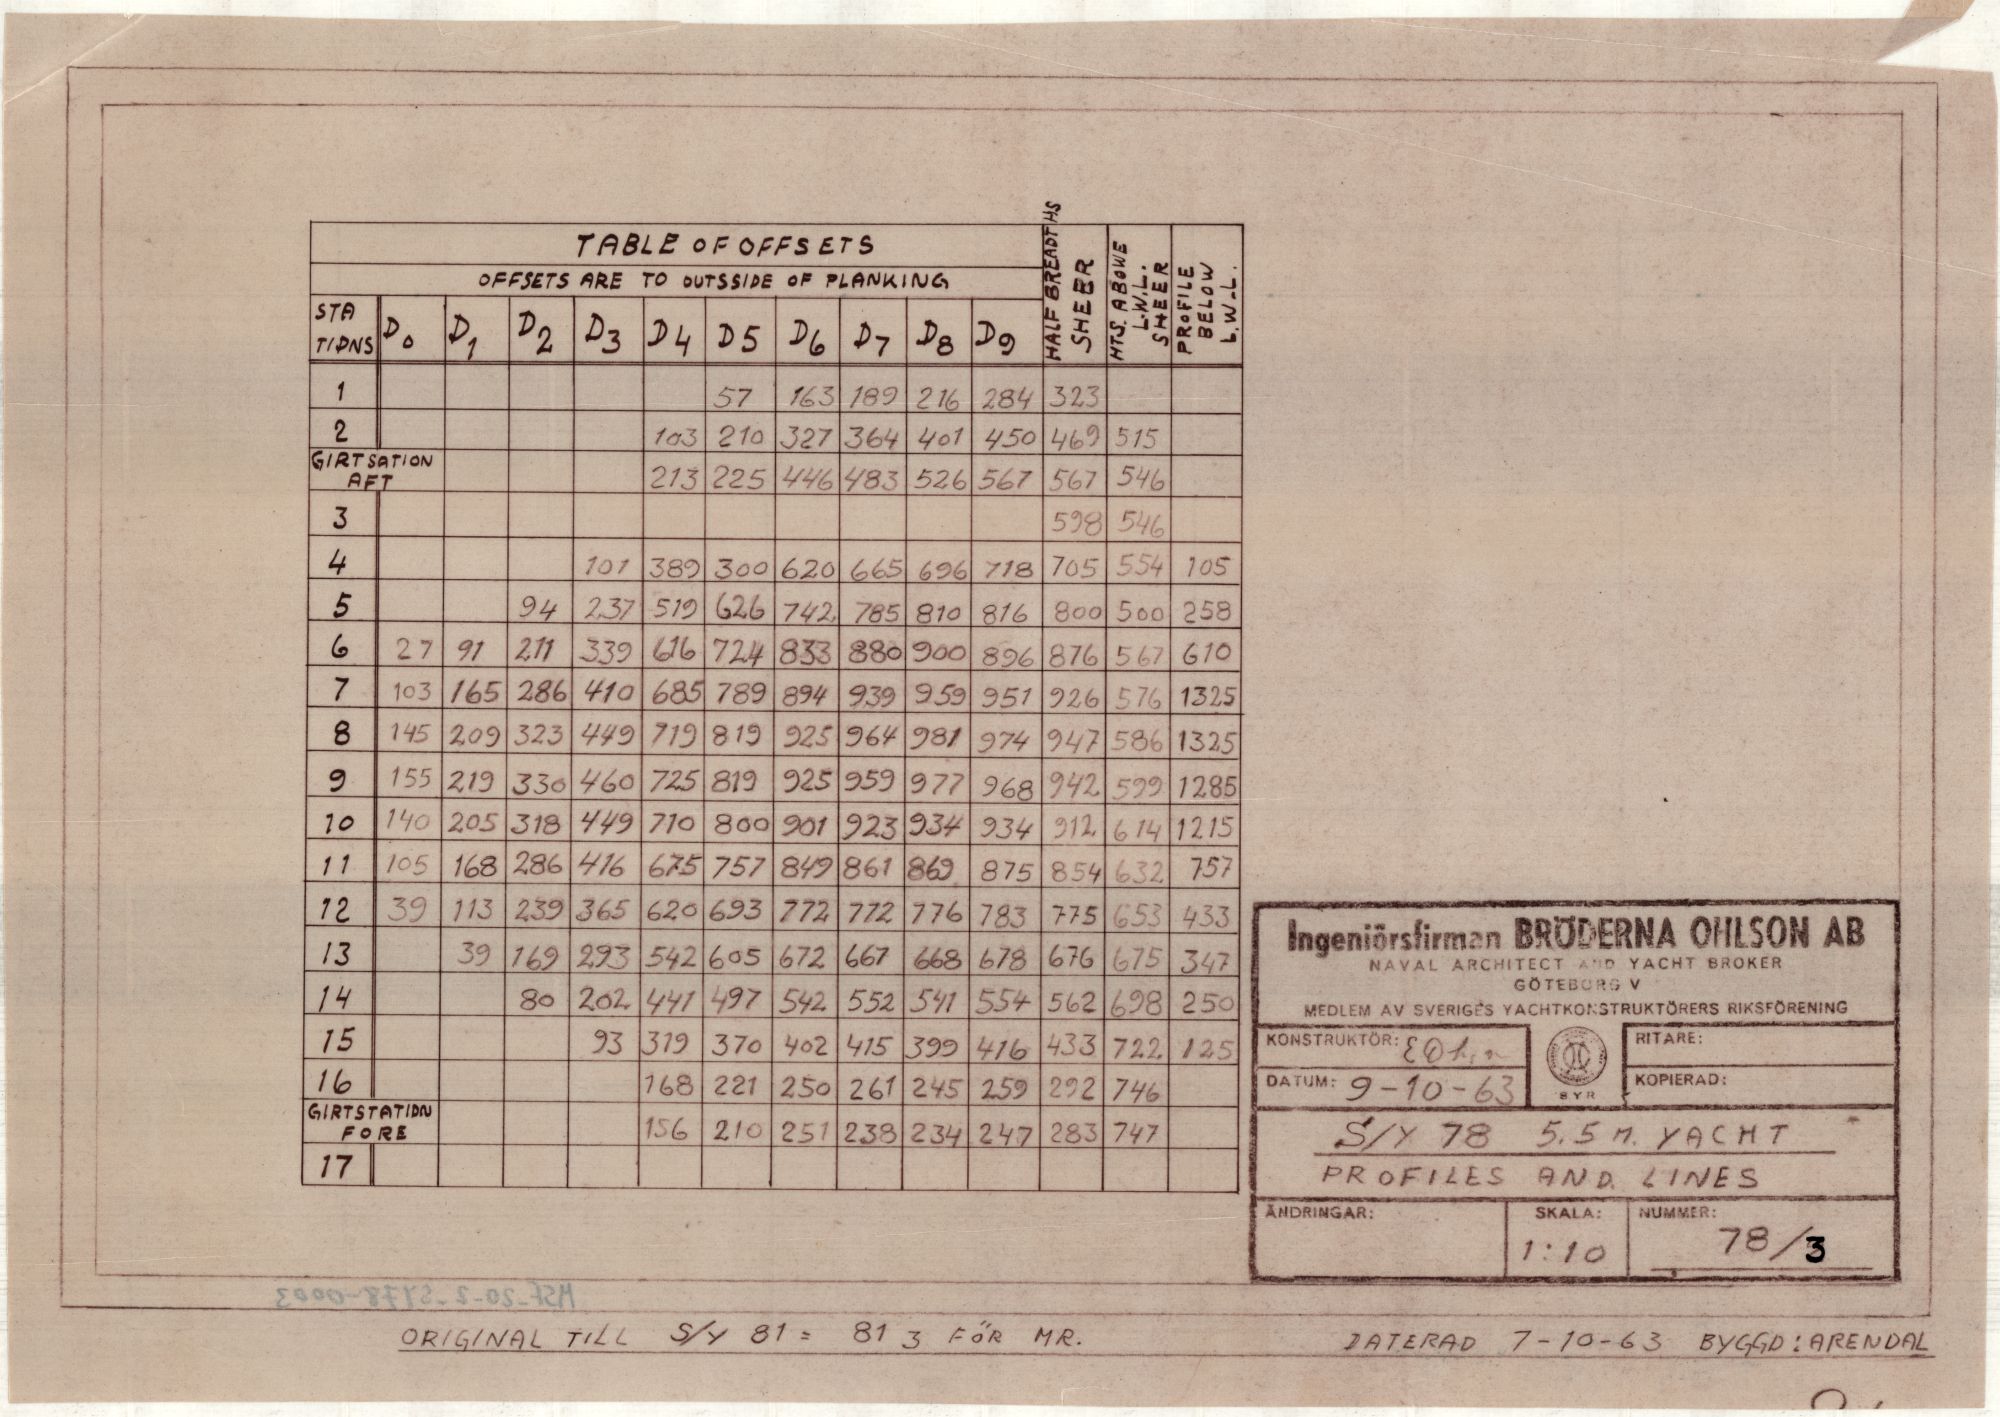 TABLE OF OFFSETS
OFFSETS ARE TO OUTSSIDE OF PLANKING
HALF BREADTHS SHEER
HTS. ABOWE L.W.L. SHEER
PROFILE BELOW L.W.L.
STATIONS D0 D1 D2 D3 D4 D5 D6 D7 D8 D9
1 57 163 189 216 284 323
2 103 210 327 364 401 450 469 515
GIRTSATION AFT 213 225 446 483 526 567 567 546
3 598 546
4 101 389 300 620 665 696 718 705 554 105
5 94 237 519 626 742 785 810 816 800 500 258
6 27 91 211 339 616 724 833 880 900 896 876 567 610
7 103 165 286 410 685 789 894 939 959 951 926 576 1325
8 145 209 323 449 719 819 925 964 981 974 947 586 1325
9 155 219 330 460 725 819 925 959 977 968 942 599 1285
10 140 205 318 449 710 800 901 923 934 934 912 614 1215
11 105 168 286 416 675 757 849 861 869 875 854 632 757
12 39 113 239 365 620 693 772 772 776 783 775 653 433
13 39 169 293 542 605 672 667 668 678 676 675 347
14 80 202 441 497 542 552 541 554 562 698 250
15 93 319 370 402 415 399 416 433 722 125
16 168 221 250 261 245 259 292 746
GIRTSTATION FORE 156 210 251 238 234 247 283 747
17
Ingeniörsfirman BRÖDERNA OHLSON AB
NAVAL ARCHITECT AND YACHT BROKER
GÖTEBORG V
MEDLEM AV SVERIGES YACHTKONSTRUKTÖRERS RIKSFÖRENING
KONSTRUKTÖR:
RITARE:
DATUM: 9-10-63
SYR
KOPIERAD:
S/Y 78 5.5 M. YACHT
PROFILES AND LINES
ÄNDRINGAR:
SKALA: 1:10
NUMMER: 78/3
MSF-20-2-SY78-0003
ORIGINAL TILL S/Y 81 = 81 3 FÖR MR.
DATERAD 7-10-63 BYGGD: ARENDAL